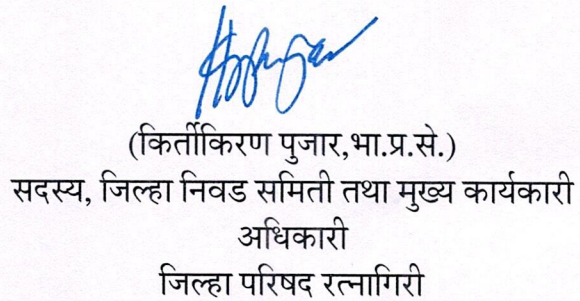 (किर्तीकिरण पुजार,भा.प्र.से.)
सदस्य, जिल्हा निवड समिती तथा मुख्य कार्यकारी
अधिकारी
जिल्हा परिषद रत्नागिरी